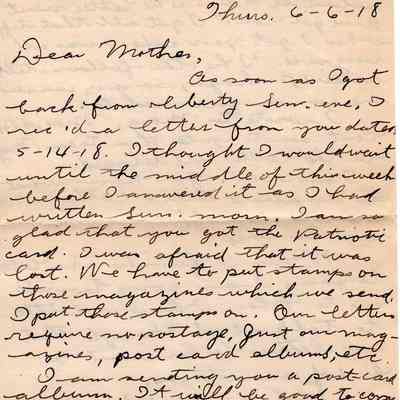 Thurs. 6-6-18
Dear Mother,
As soon as I got
back from Liberty Sun. eve, I
rec'd a letter from you dated
5-14-18. I thought I would wait
until the middle of this week
before I answered it as I had
written Sun. morn. I am so
glad that you got the Patriotic
card. I was afraid that it was
lost. We have to put stamps on
those magazines which we send.
I put those stamps on. Our letters
require no postage, Just our mag-
azines, post card albums, etc.
I am sending you a post-card
album. It will be good to